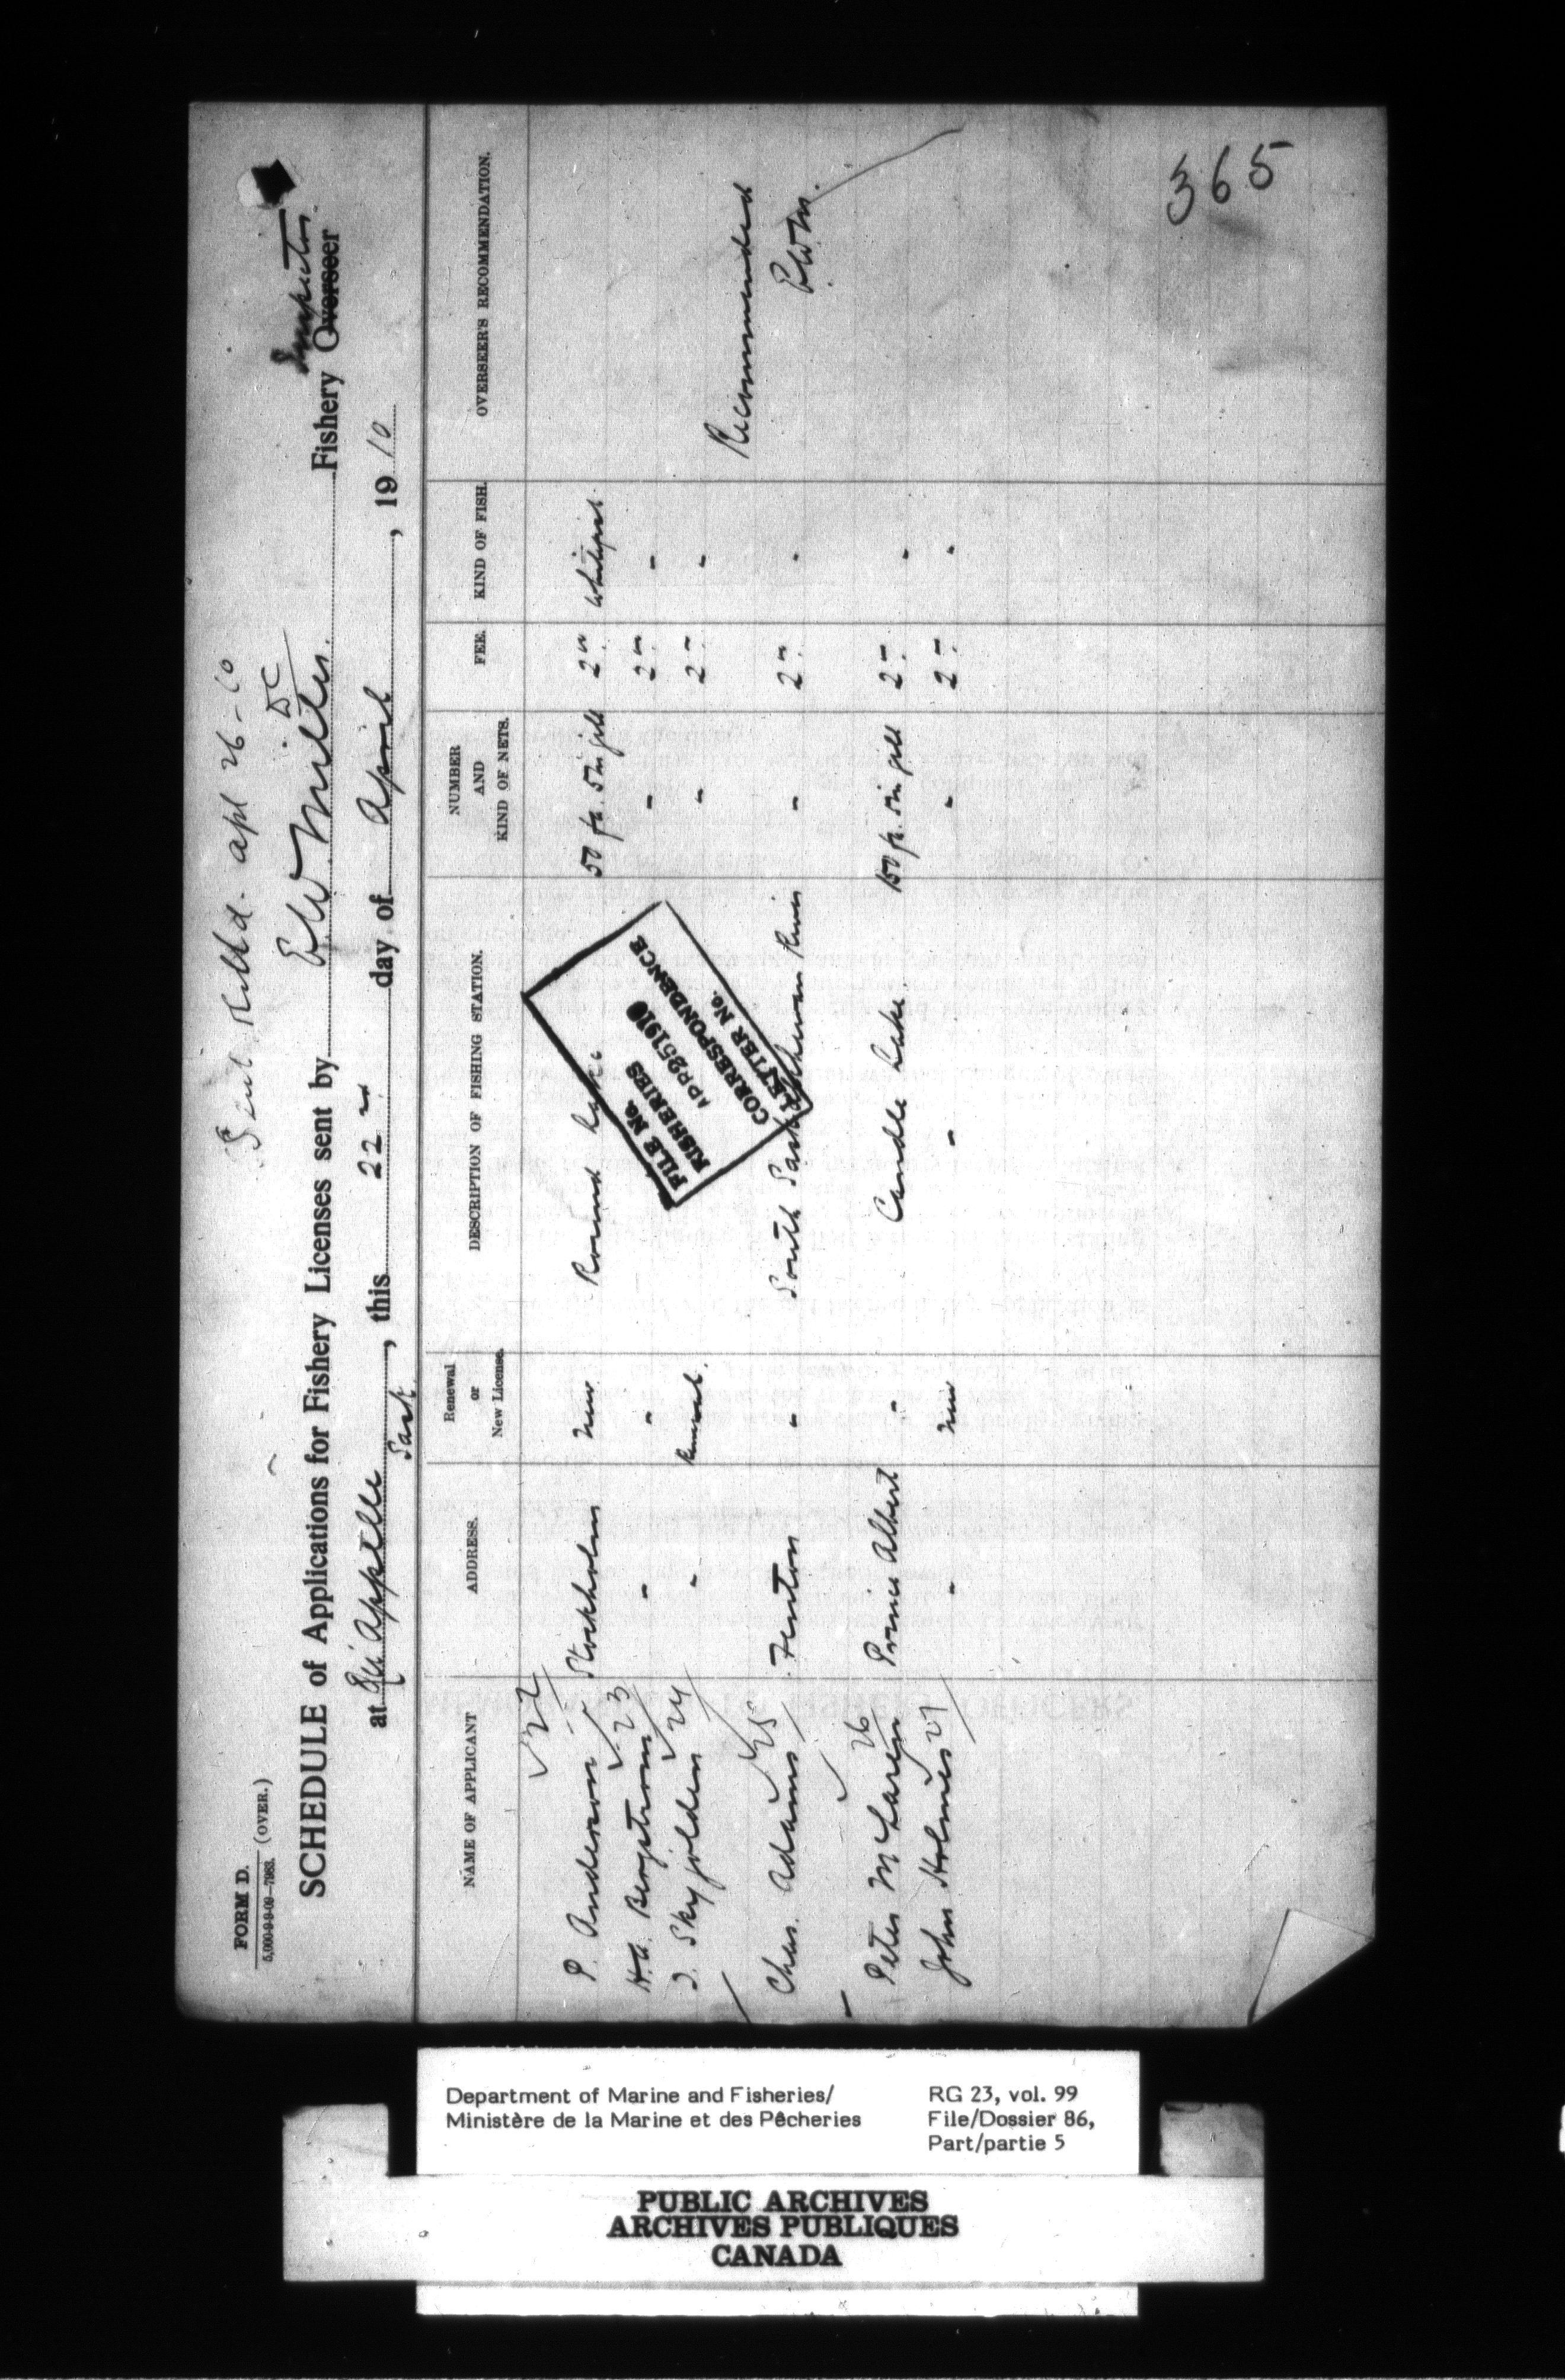 FORM D.
5,000-9-9-09—7983. (OVER.)
Sent Apl 26-10
SCHEDULE of Applications for Fishery Licenses sent by E W Miller. Fishery Overseer Inspector
D C
at Qu'Appelle Sask, this 22 day of April, 1910
NAME OF APPLICANT ADDRESS. Renewal or New License. DESCRIPTION OF FISHING STATION. NUMBER AND KIND OF NETS. FEE. KIND OF FISH. OVERSEER'S RECOMMENDATION.
22
P. Anderson Stockholm New Round Lake 50 fa. 5 in gill 2 Whitefish
23
H.A. Bergstrom " " " 2 " "
24
Skyjolden " Renewal. " 2 "
Recommended
25
Chas. Adams Fenton " South Saskatchewan River " 2 "
E W M.
26
Peter McLaren Prince Albert " Candle Lake 150 fa. 5 in gill 2 "
John Holmes 27 " New " " 2 "
FILE No.
FISHERIES
APR 25 1910
CORRESPONDENCE
LETTER No.
365
Department of Marine and Fisheries/
Ministère de la Marine et des Pêcheries
RG 23, vol. 99
File/Dossier 86,
Part/partie 5
PUBLIC ARCHIVES
ARCHIVES PUBLIQUES
CANADA